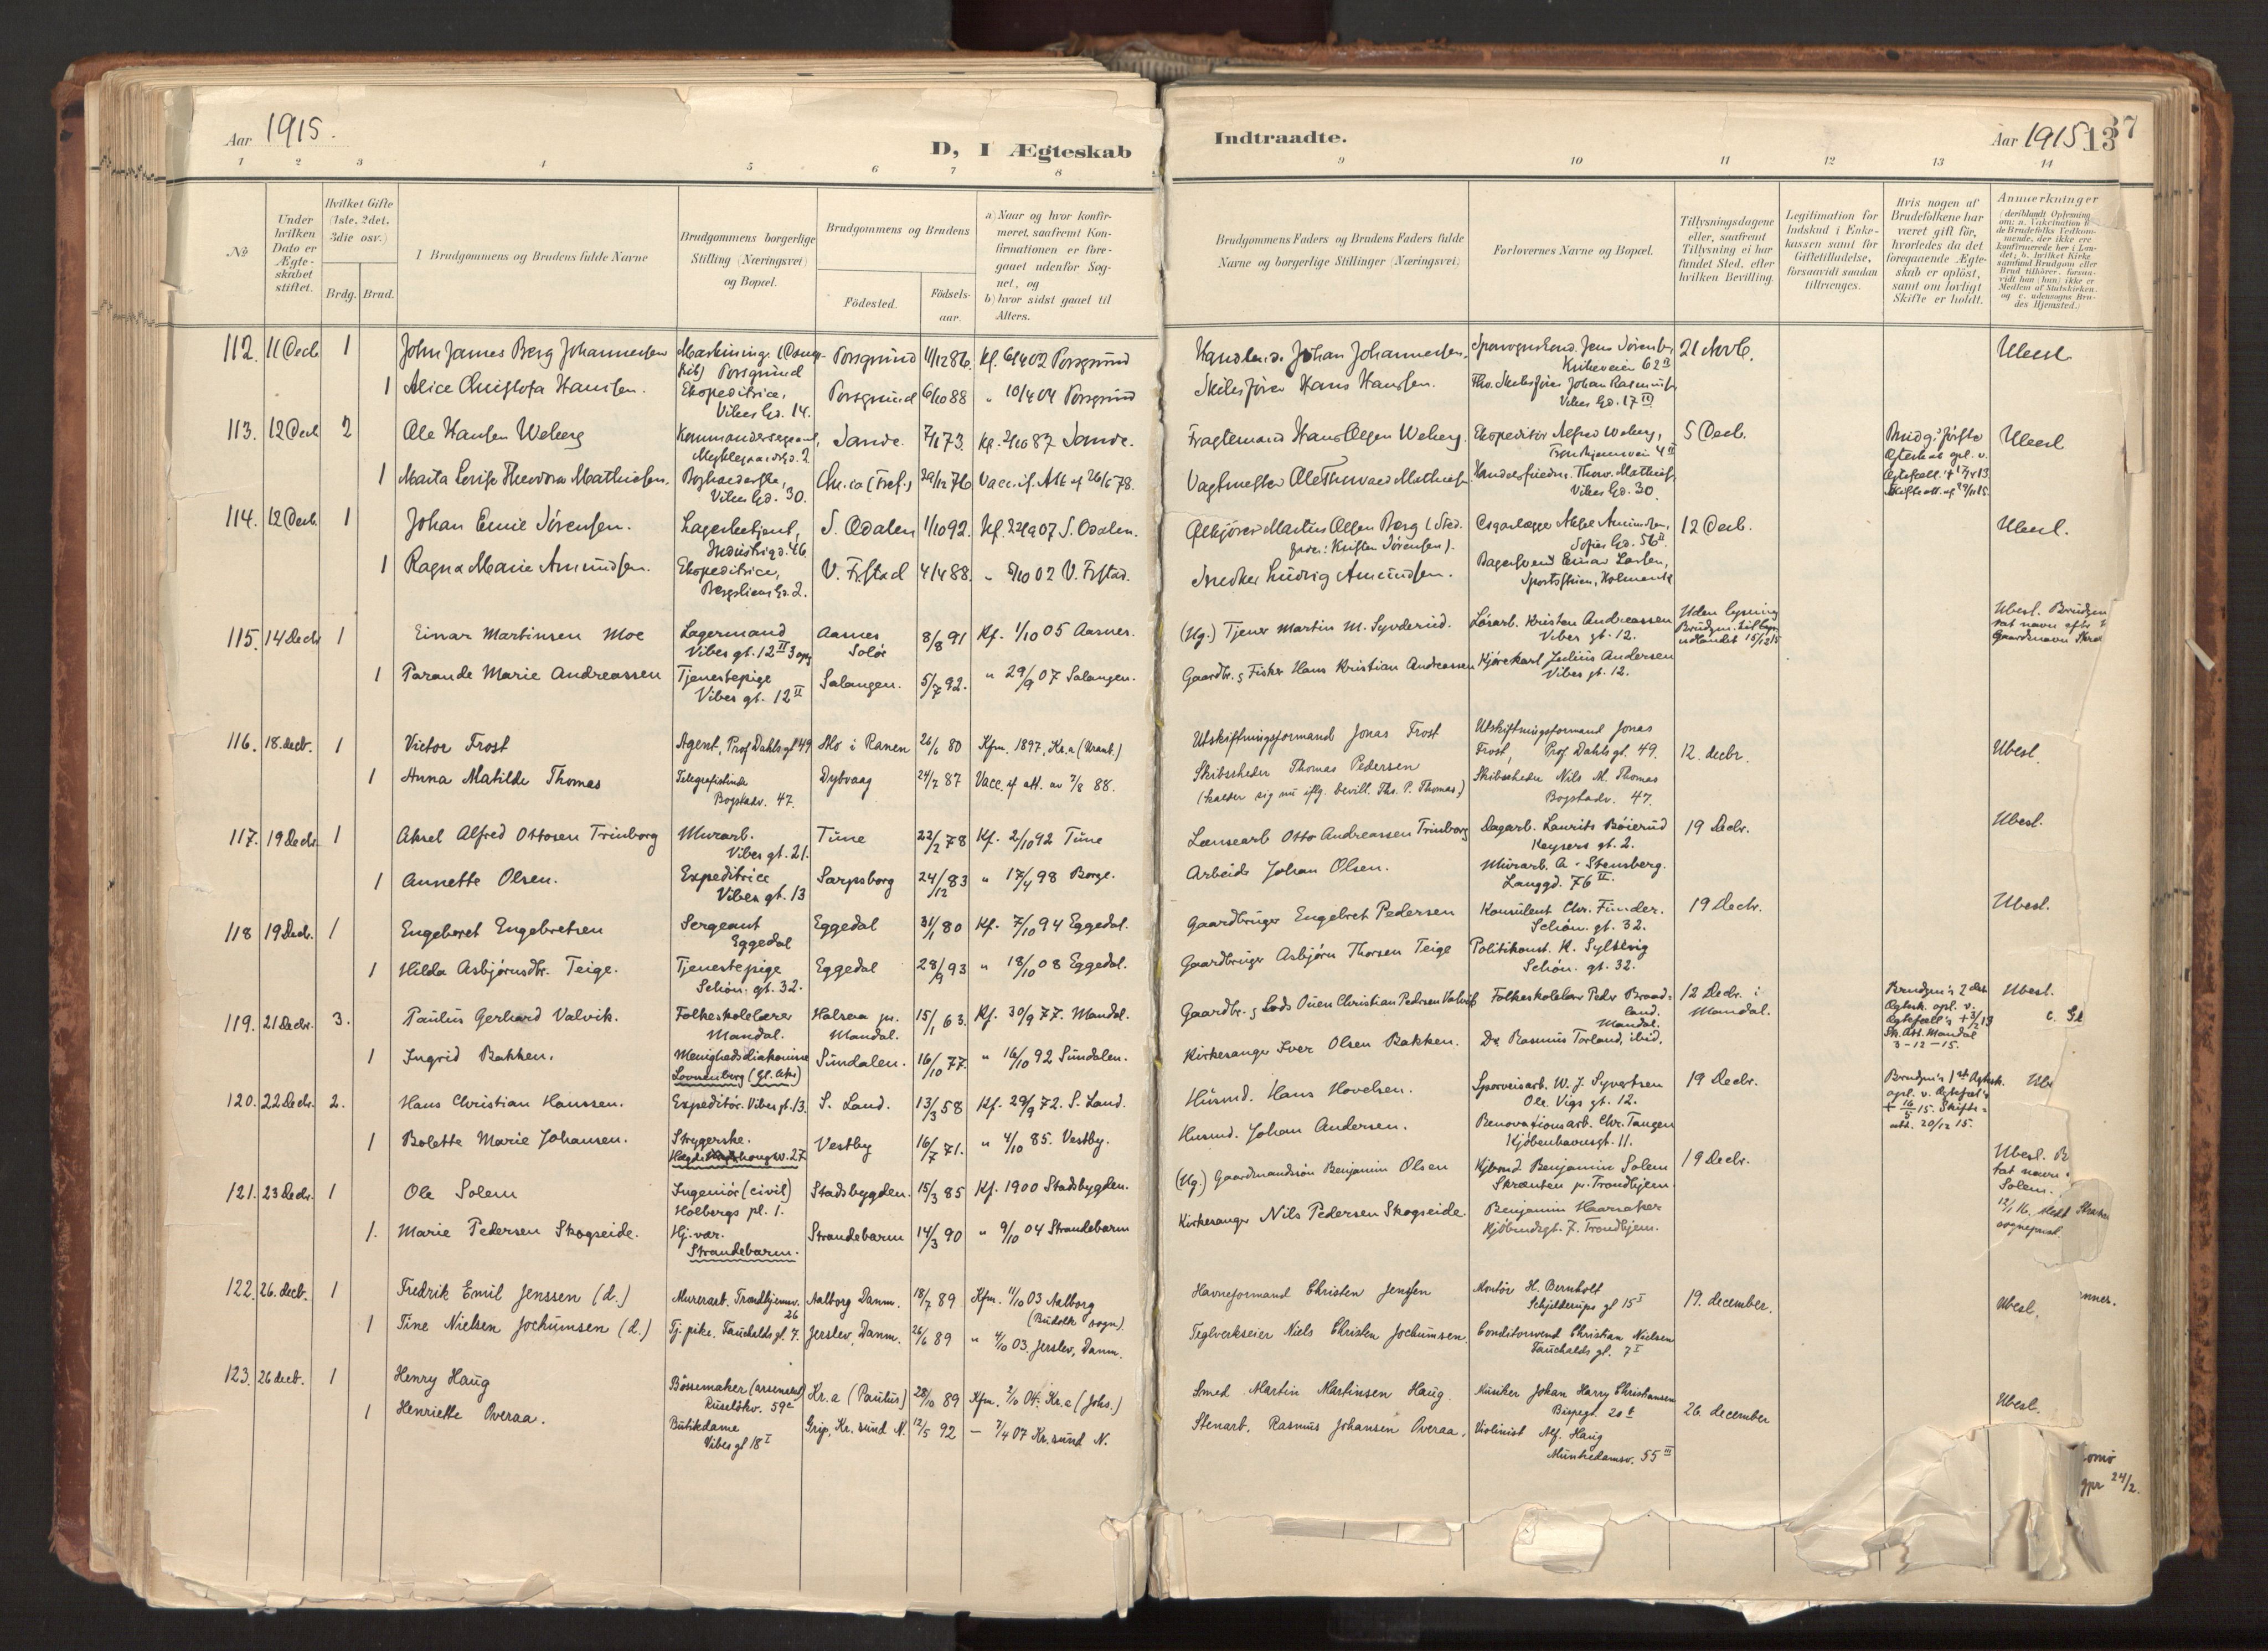 Aar 1915.
D, I Ægteskab
1 2 3 4 5 6 7 8
№
Under hvilken Dato er Ægteskabet stiftet.
Hvilket Gifte (1ste, 2det, 3die osv.)
Brdg. Brud.
1 Brudgommens og Brudens fulde Navne
Brudgommens borgerlige Stilling (Næringsvei) og Bopæl.
Brudgommens og Brudens
Födested.
Födsels-aar.
a) Naar og hvor konfirmeret, saafremt Konfirmationen er foregaaet udenfor Sognet, og
b) hvor sidst gaaet til Alters.
112. 11 Decb. 1 John James Berg Johannessen Porsgrund 11/12 86. Kf. 6/4 02 Porsgrund
Porsgrund
1 Alice Hanssen. Ekspeditrice, Porsgrund 6/10 88 " 10/4 04 Porsgrund
Vibes Gd. 14.
113. 12 Decb 2 Ole Hansen Weberg Kommandersergeant, Sande. 73. Kf. 2/10 87 Sande.
1 Marta Lovise Theodora Mathiesen. 29/12 76 Vacc. if. Att. af 26/6 78.
Vibes Gd. 30.
114. 12 Decb. 1 Johan Emil Sörensen. Lagerbetjent, S. Odalen 1/10 92. Kf. 22/9 07 S. Odalen.
Industrigd. 46
1 Ragna Marie Amundsen. Ekspeditrice, V. Frstad 4/4 88. " 5/10 02 V. Frstad.
Bergsliens Gd. 2.
115. 14 Decbr 1 Einar Martinsen Moe Lagermand Aasnes 8/8 91 Kf. 1/10 05 Aasnes.
Vibes gt. 12 II Solör
1 Parande Marie Andreassen Tjenestepige Salangen. 5/7 92. " 29/9 07 Salangen.
Vibes gt. 12 II
116. 18. decb. 1 Victor Frost Agent, Prof Dahls gt 49 Mo i Ranen 26/6 80 Kfm. 1897, Kr.a (Uranb.)
1 Anna Matilde Thomas Telegrafistinde Dybvaag 24/7 87 Vacc. if. att. av 7/8 88.
Bogstadv. 47.
117. 19 Decbr. 1 Aksel Alfred Ottosen Trinborg Murarb. Tune 22/2 78 Kf. 2/10 92 Tune
Vibes gt. 21.
1 Annette Olsen. Expeditrice Sarpsborg 24/12 83 " 17/4 98 Borge.
Vibes gt. 13
118 19 Decb. 1 Engebret Engebretsen Sergeant Eggedal 31/1 80 Kf. 7/10 94 Eggedal.
Eggedal
1 Hilda Asbjörnsdtr. Teige. Tjenestepige Eggedal 28/9 93 " 18/10 08 Eggedal.
Schön. gt. 32.
119. 21 Decbr. 3. Paulus Gerhard Valvik. Folkeskolelærer Halsaa pr. 15/1 63. Kf. 30/9 77. Mandal.
Mandal. Mandal.
1 Ingrid Bakken. Menighedsdiakonisse Sundalen. 16/10 77. " 16/10 92 Sundalen.
Lovisenberg (Gl. Aker)
120. 22 Decbr. 2. Hans Christian Hanssen. Expeditör. Vibes gt. 13. S. Land. 13/3 58 Kf. 29/9 72. S. Land.
1 Bolette Marie Johansen. Strygerske. Vestby 16/7 71. " 4/10 85. Vestby.
121. 23 Decbr. 1 Ole Solem Ingeniör (civil) Stadsbygden. 15/3 85 Kf. 1900 Stadsbygden.
Holbergs pl. 1.
1. Marie Pedersen Skogseide. Hj. vær. Strandebarm 14/3 90 " 9/10 04 Strandebarm
Strandebarm.
122. 26. decb. 1 Fredrik Emil Jenssen (d.) Murerarb. Trondhjemsv. 26 Aalborg Danm. 18/7 89 Kfm. 4/10 03 Aalborg
(Budolfi sogn)
1 Tine Nielsen Jochumsen (d.) Tj. pike. Fauchalds gt. 7. Jerslev, Danm. 26/6 89 " 4/10 03. Jerslev, Danm.
123. 26 decb. 1 Henry Haug Bössemaker (arsenalet) Kr.a (Paulus) 28/10 89 Kfm. 2/10 04. Kr.a (Johs.)
Ruselökv. 59
1 Henriette Overaa. Butikdame Grip, Kr. sund N. 12/5 92 – 7/4 07 Kr. sund N.
Vibes gt 18 I
Indtraadte.
Aar 1915
13
37
9 10 11 12 13 14
Brudgommens Faders og Brudens Faders fulde Navne og borgerlige Stillinger (Næringsvei)
Forlovernes Navne og Bopæl.
Tillysningsdagene eller, saafremt Tillysning ei har fundet Sted, efter hvilken Bevilling.
Legitimation for Indskud i Enkekassen samt for Giftetilladelse, forsaavidt saadan tiltrænges.
Hvis nogen af Brudefolkene har været gift för, hvorledes da det foregaaende Ægteskab er oplöst, samt om lovligt Skifte er holdt.
Anmerkninger
Johan Johannessen. 21 Novb. Ubesl
Kirkeveien 62
Skibsförer Hans Hanssen. Johan Rasmus
Vibes Gd. 17
Fragtemand Hans Olsen Weberg. Ekspeditör Alfred Weberg, 5 Decb. Ubesl
Trondhjemsvei 4 II
Vagtmester Ole Thorvald Mathies
Vibes Gd. 30.
Martin Olsen Berg (Sted 12 Decb. Ubesl.
fader: Kristen Sörensen). Sofies Gd. 56 II.
Snedker Ludvig Amundsen. Bagersvend Einar Larsen,
(Ug.) Tjener Martin M. Syvderud. Lösarb. Kristen Andreassen Uden lysning
Vibes gt. 12.
Gaardbr. & Fisker Hans Kristian Andreassen Kjörekarl Julius Andersen
Vibes gt. 12.
Utskiftningsformand Jonas Frost Utskiftningsformand Jonas
Frost, Prof Dahls gt. 49. 12. decbr. Ubesl.
Skibsreder Thomas Pedersen Skibsreder Nils M. Thomas
(kalder sig nu iflg. bevill. Ths. P. Thomas.) Bogstadv. 47.
Lænsearb Otto Andreassen Trinborg Dagarb. Laurits Böierud 19 Decbr. Ubesl.
Keysers gt. 2.
Arbeids Johan Olsen. Murarb. A. Stensberg.
Langgd. 76 II.
Gaardbruger Engebret Pedersen Konsulent Chr. Funder. 19 Decbr. Ubesl.
Schön. gt. 32.
Gaardbruger Asbjörn Thorsen Teige Politikonst. K. Syltevig
Schön. gt. 32.
Gaardbr. & Lods Ouen Christian Pedersen Valvik Folkeskolelærer Peder Braadland. 12 Decbr. i Brudgm's 2 det Ubesl.
Mandal. Mandal. Ægtesk. opl. v.
Kirkesanger Iver Olsen Bakken. Dr. Rasmus Torland, ibid. Sk. Att. Mandal
3-12-15.
Husmd. Hans Hovelsen. Sporveisarb. W. J. Syvertsen 19 Decbr. Brudgm's 1st Ægtesk.
Ole Vigs gt. 12. opl. v. Ægtefæl's
+ 16/5 15. Skifte-
Husmd. Johan Andersen. Renovationsarb. Chr. Tangen att. 20/12 15.
Kjöbenhavnsgt. 11.
(Ug.) Gaardmandssön Benjamin Olsen Kjbmd Benjamin Solem 19 Decbr. Ubesl.
Skrænten pr. Trondhjem
Kirkesanger Nils Pedersen Skogseide. Benjamin Haarsaker
Kjöbmdsgt. 7. Trondhjem.
Havneformand Christen Jenssen Montör H. Bernholt 19. december. Ubesl.
Schjelderups gt 15 I
Teglverkseier Niels Christen Jochumsen. Conditorsvend Christian Nielsen
Fauchalds gt. 7 I
Smed Martin Martinsen Haug. Musiker Johan Harry Christiansen 26. december Ubesl.
Bispegt. 20
Stenarb. Rasmus Johansen Overaa, Violinist Alf. Haug
Munkedamsv. 55 III